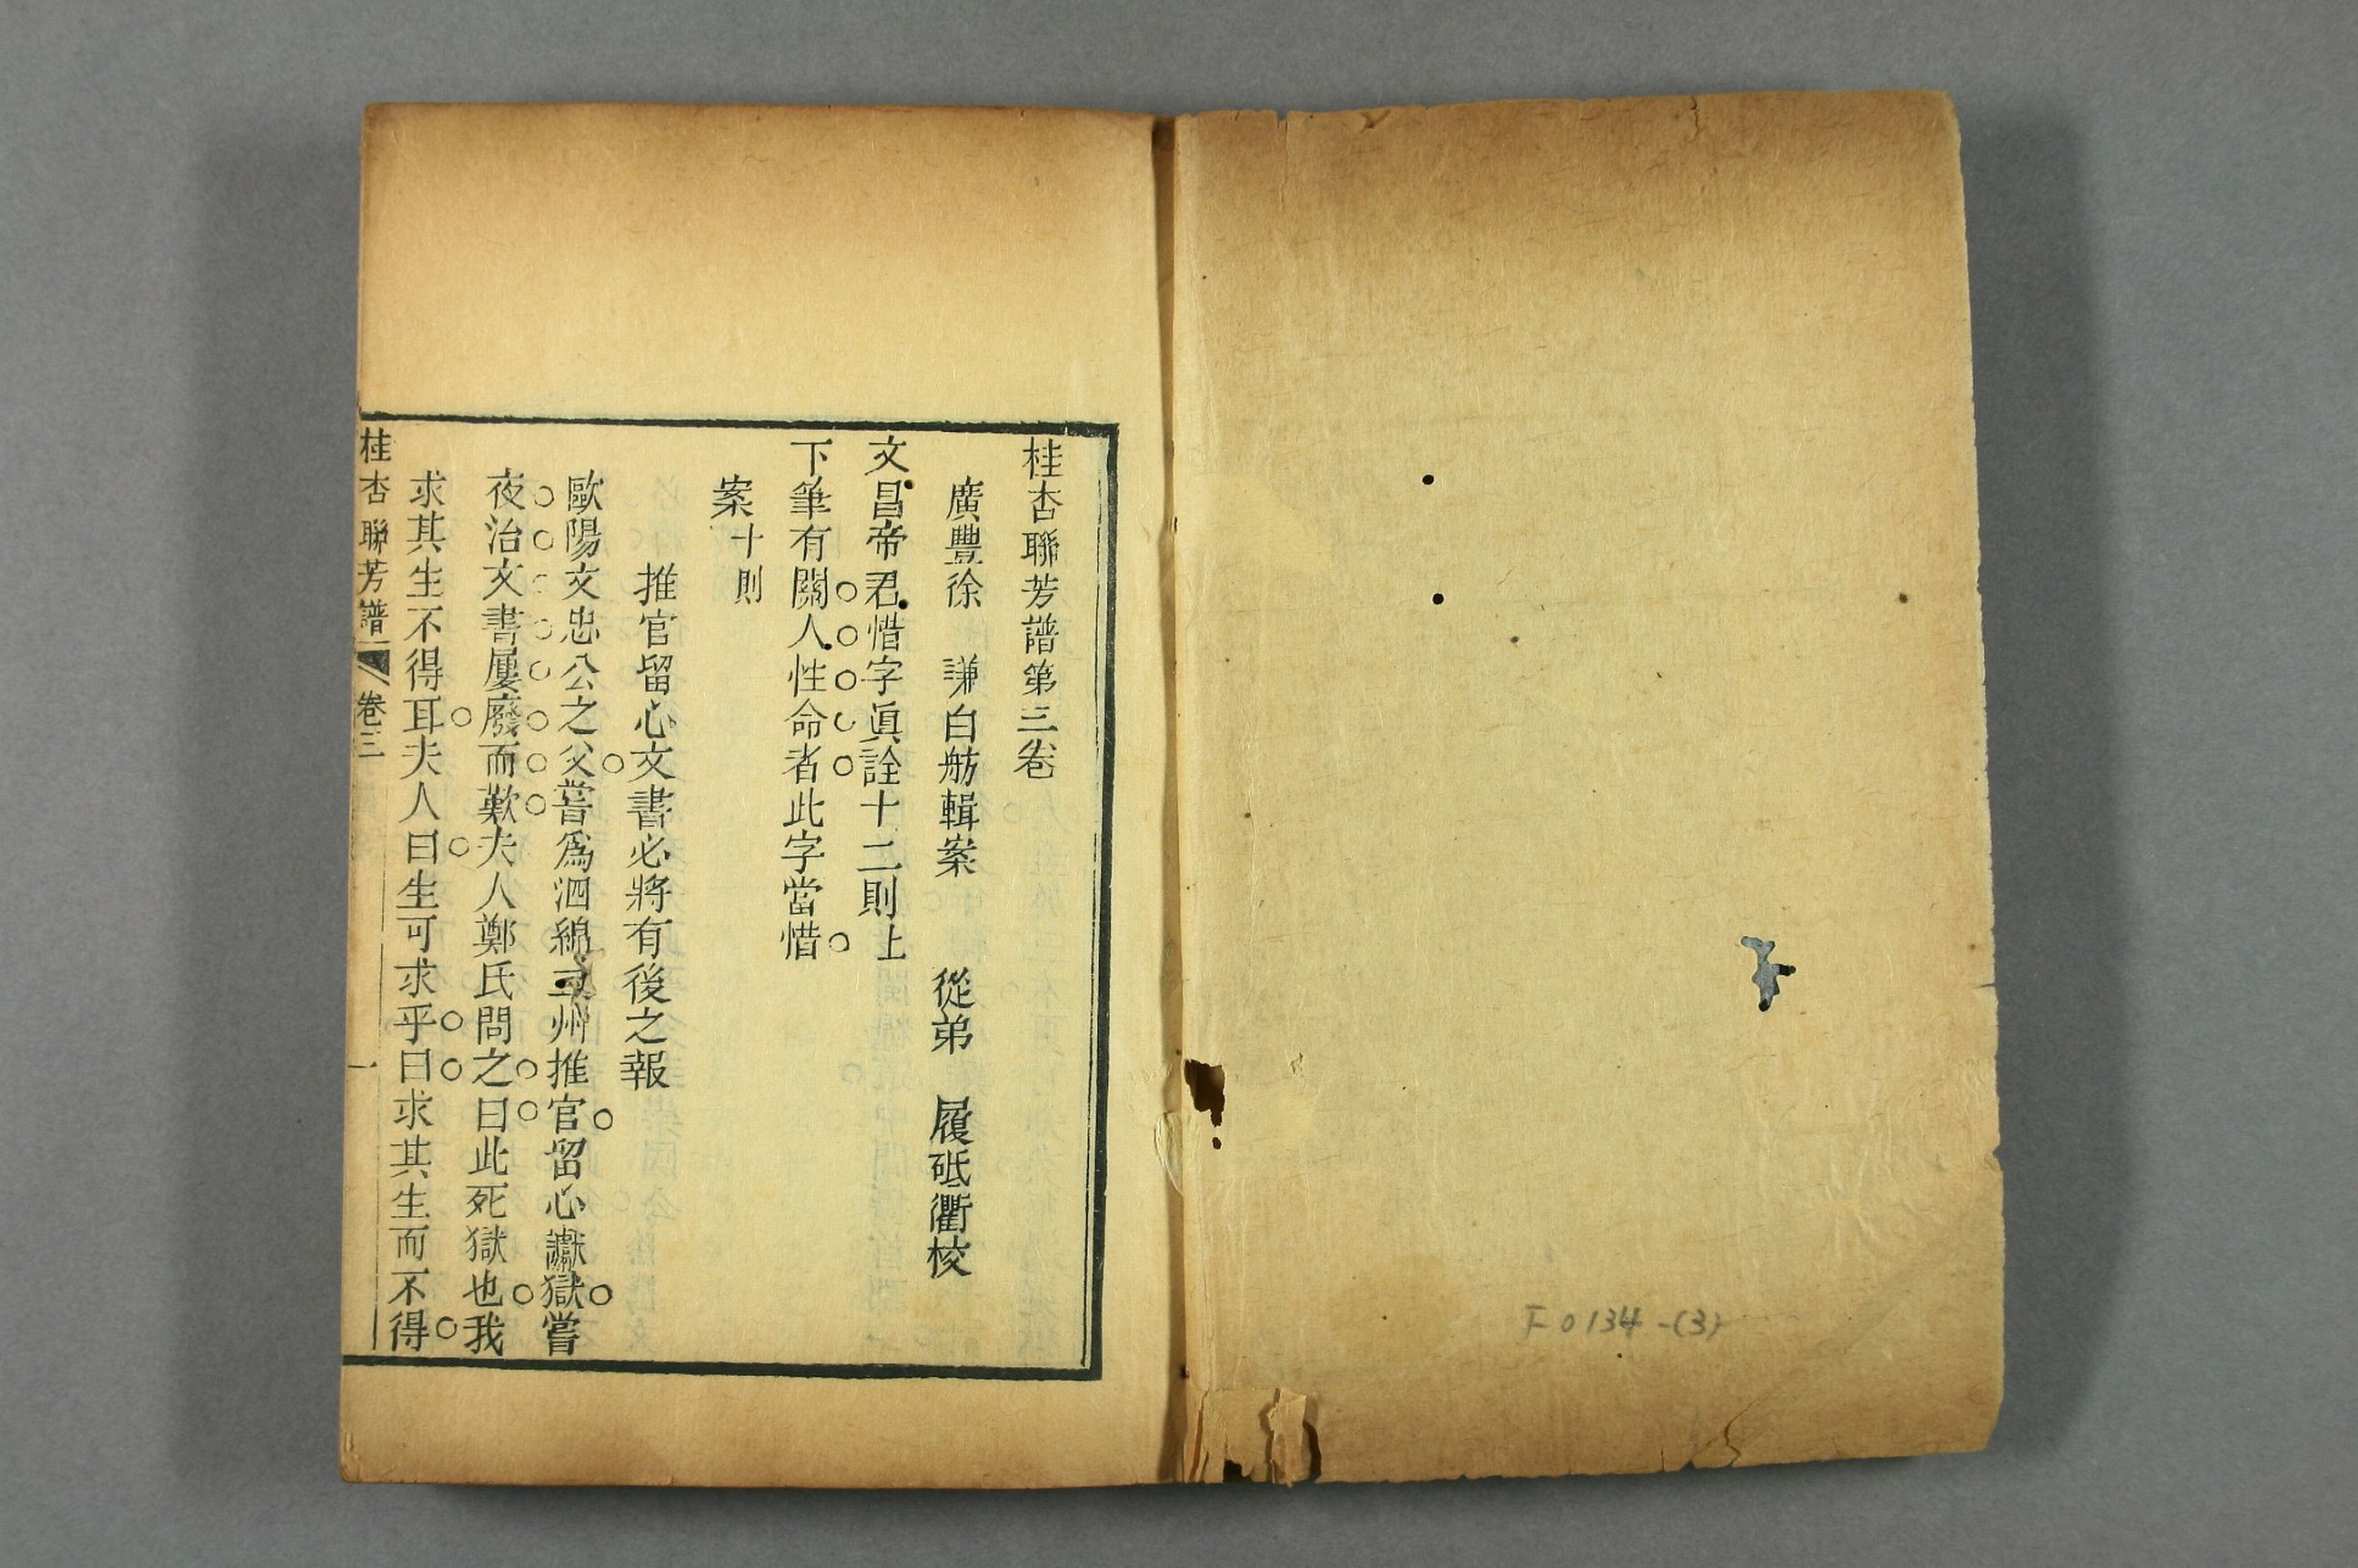 桂杏聯芳譜第三卷
廣豐徐　謙白舫輯案　　從弟　履砥衢校
文昌帝君惜字眞詮十二則上
下筆有關人性命者此字當惜
案十則
推官留心文書必將有後之報
歐陽文忠公之父嘗爲泗綿二州推官留心讞獄嘗
夜治文書屢廢而歎夫人鄭氏問之曰此死獄也我
求其生不得耳夫人曰生可求乎曰求其生而不得
桂杏聯芳譜　卷三　一
F 0134-(3)